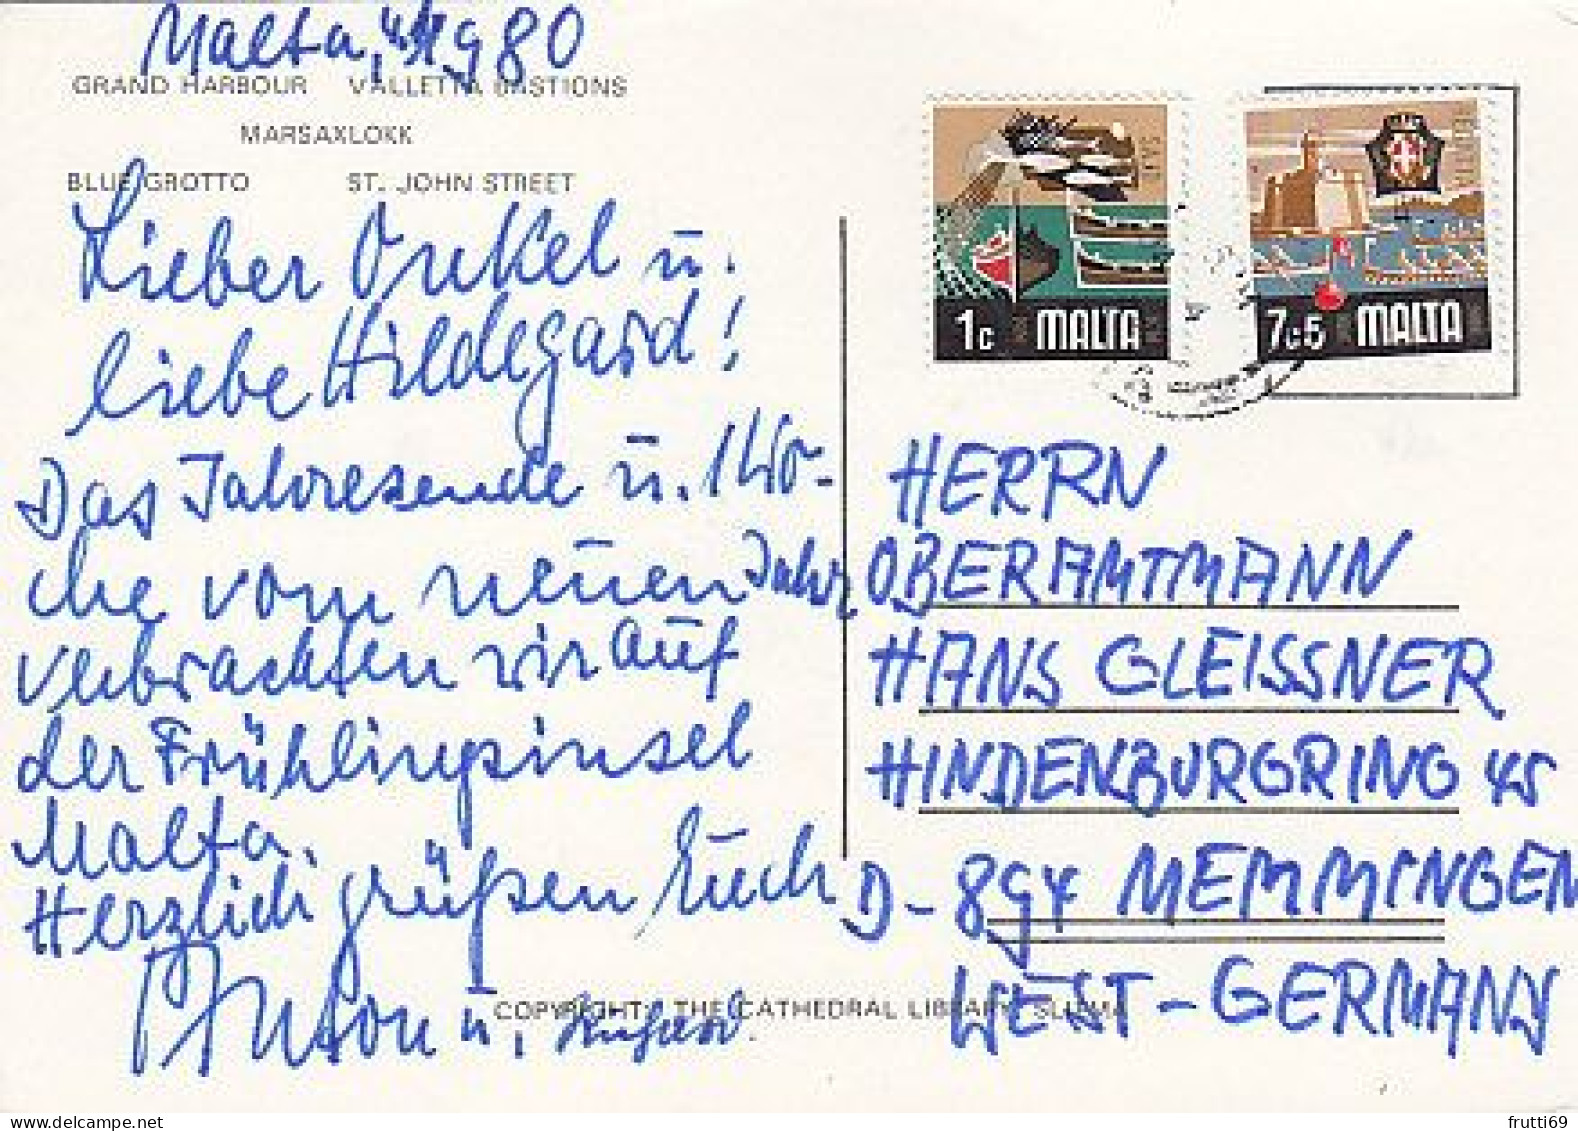 Malta, 4.1.1980
GRAND HARBOUR VALLETTA BASTIONS
MARSAXLOKK
BLUE GROTTO ST. JOHN STREET
Lieber Onkel u.
liebe Hildegard!
Das Jahresende u. 1 Wo-
che vom neuen Jahr
verbrachten wir auf
der Frühlingsinsel
Malta.
Herzlich grüßen Euch
Anton u.
COPYRIGHT: THE CATHEDRAL LIBRARY, SLIEMA
1c MALTA
7c5 MALTA
HERRN
OBERAMTMANN
HANS GLEISSNER
HINDENBURGRING 45
D-894 MEMMINGEN
WEST-GERMANY
frutti69